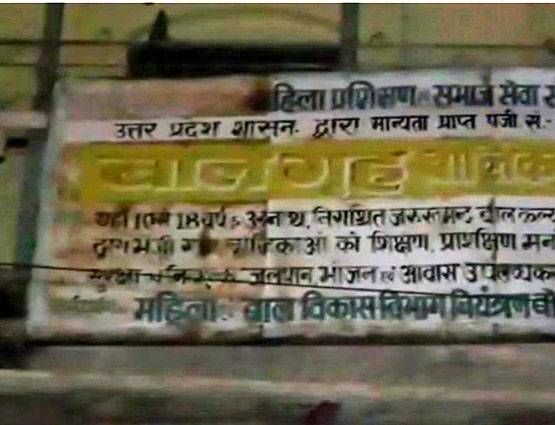 हिला प्रशिक्षण समाज सेवा स
उत्तर प्रदेश शासन. द्वारा मान्यता प्राप्त पंजी स.-
बालगृह बालिक
18 वर्ष अनाथ, निराश्रित जरूरतमन्द बाल कल्
द्वारा बालिकाओं को शिक्षण, प्रशिक्षण मनो
जलपान भोजन एवं आवास उपलब्धक
महिला बाल विकास विभाग नियंत्रण बो